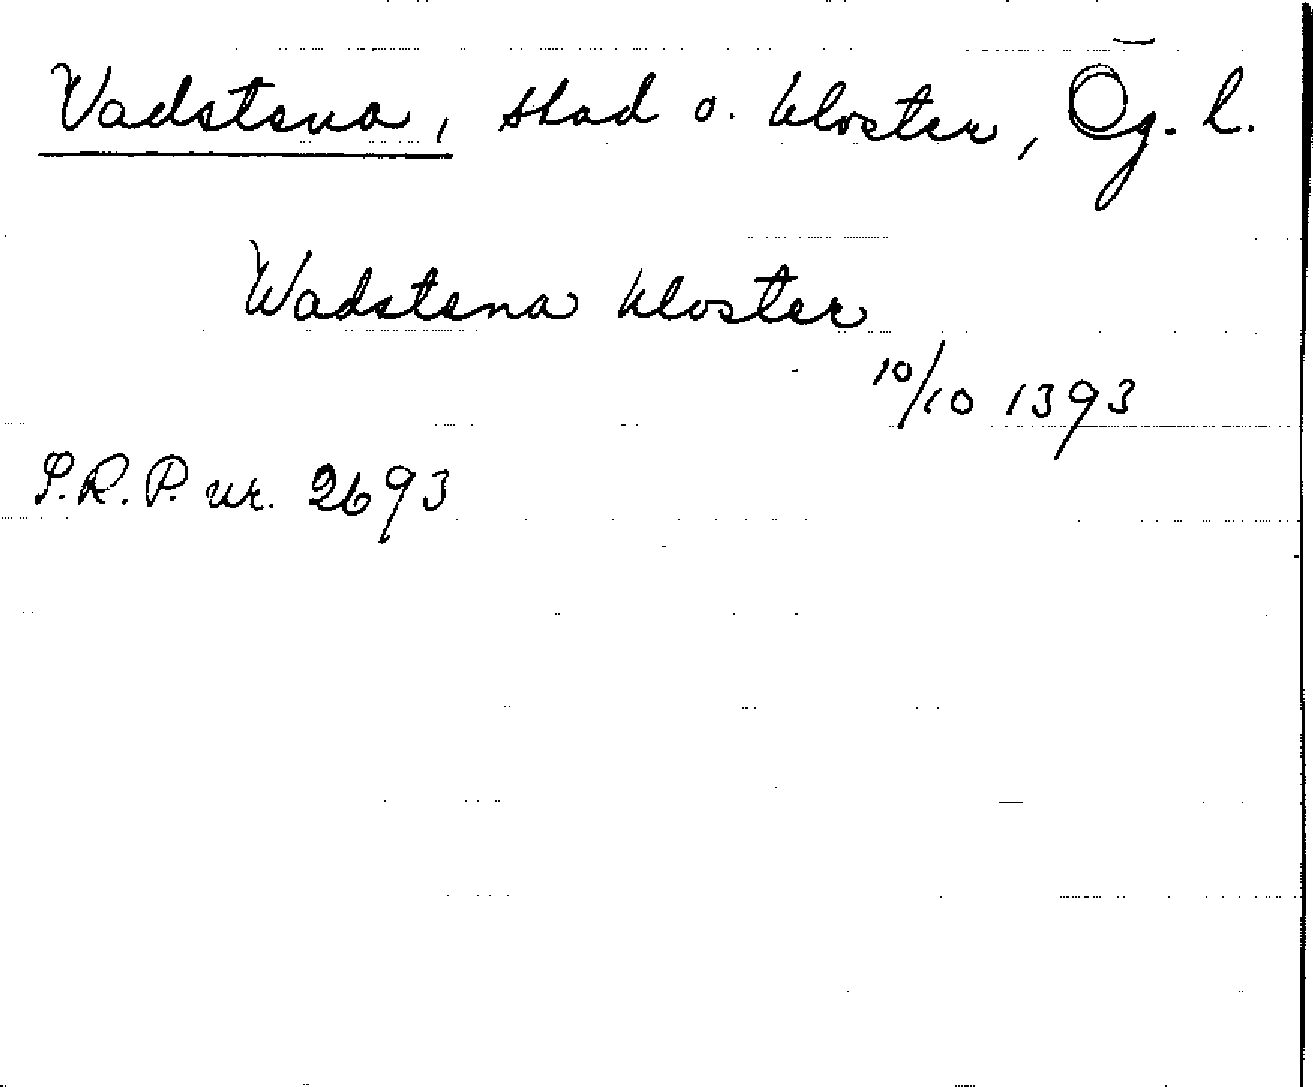 Vadstena, stad o. kloster, Ög. l.
Wadstena kloster
10/10 1393
S.R.P. nr. 2693